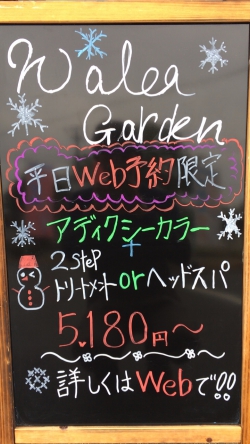 Walea
Garden
平日Web予約限定
アディクシーカラー
+
2Step
トリートメントorヘッドスパ
5,180円〜
詳しくはWebで!!